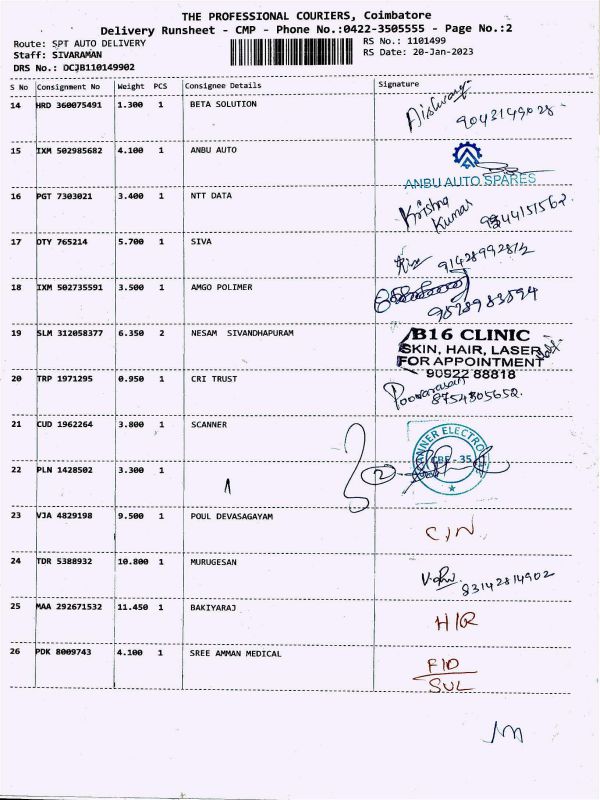 THE PROFESSIONAL COURIERS, Coimbatore
Delivery Runsheet - CMP - Phone No.:0422-3505555 - Page No.:2
Route: SPT AUTO DELIVERY
RS No.: 1101499
Staff: SIVARAMAN
RS Date: 20-Jan-2023
DRS No.: DCJB110149902
S No Consignment No Weight PCS Consignee Details Signature
14 HRD 360075491 1.300 1 BETA SOLUTION
9043149028
15 IXM 502985682 4.100 1 ANBU AUTO
ANBU AUTO SPARES
16 PGT 7303021 3.400 1 NTT DATA Krishna
Kumar
17 OTY 765214 5.700 1 SIVA
91428992812
18 IXM 502735591 3.500 1 AMGO POLIMER
9528983594
19 SLM 312058377 6.350 2 NESAM SIVANDHAPURAM
B16 CLINIC
SKIN, HAIR, LASER
FOR APPOINTMENT
90922 88818
20 TRP 1971295 0.950 1 CRI TRUST Poovarasan
8754805652.
21 CUD 1962264 3.800 1 SCANNER
22 PLN 1428502 3.300 1
2
23 VJA 4829198 9.500 1 POUL DEVASAGAYAM
C/N
24 TDR 5388932 10.800 1 MURUGESAN
83142814902
25 MAA 292671532 11.450 1 BAKIYARAJ
H/R
26 PDK 8009743 4.100 1 SREE AMMAN MEDICAL
F/D
SUL